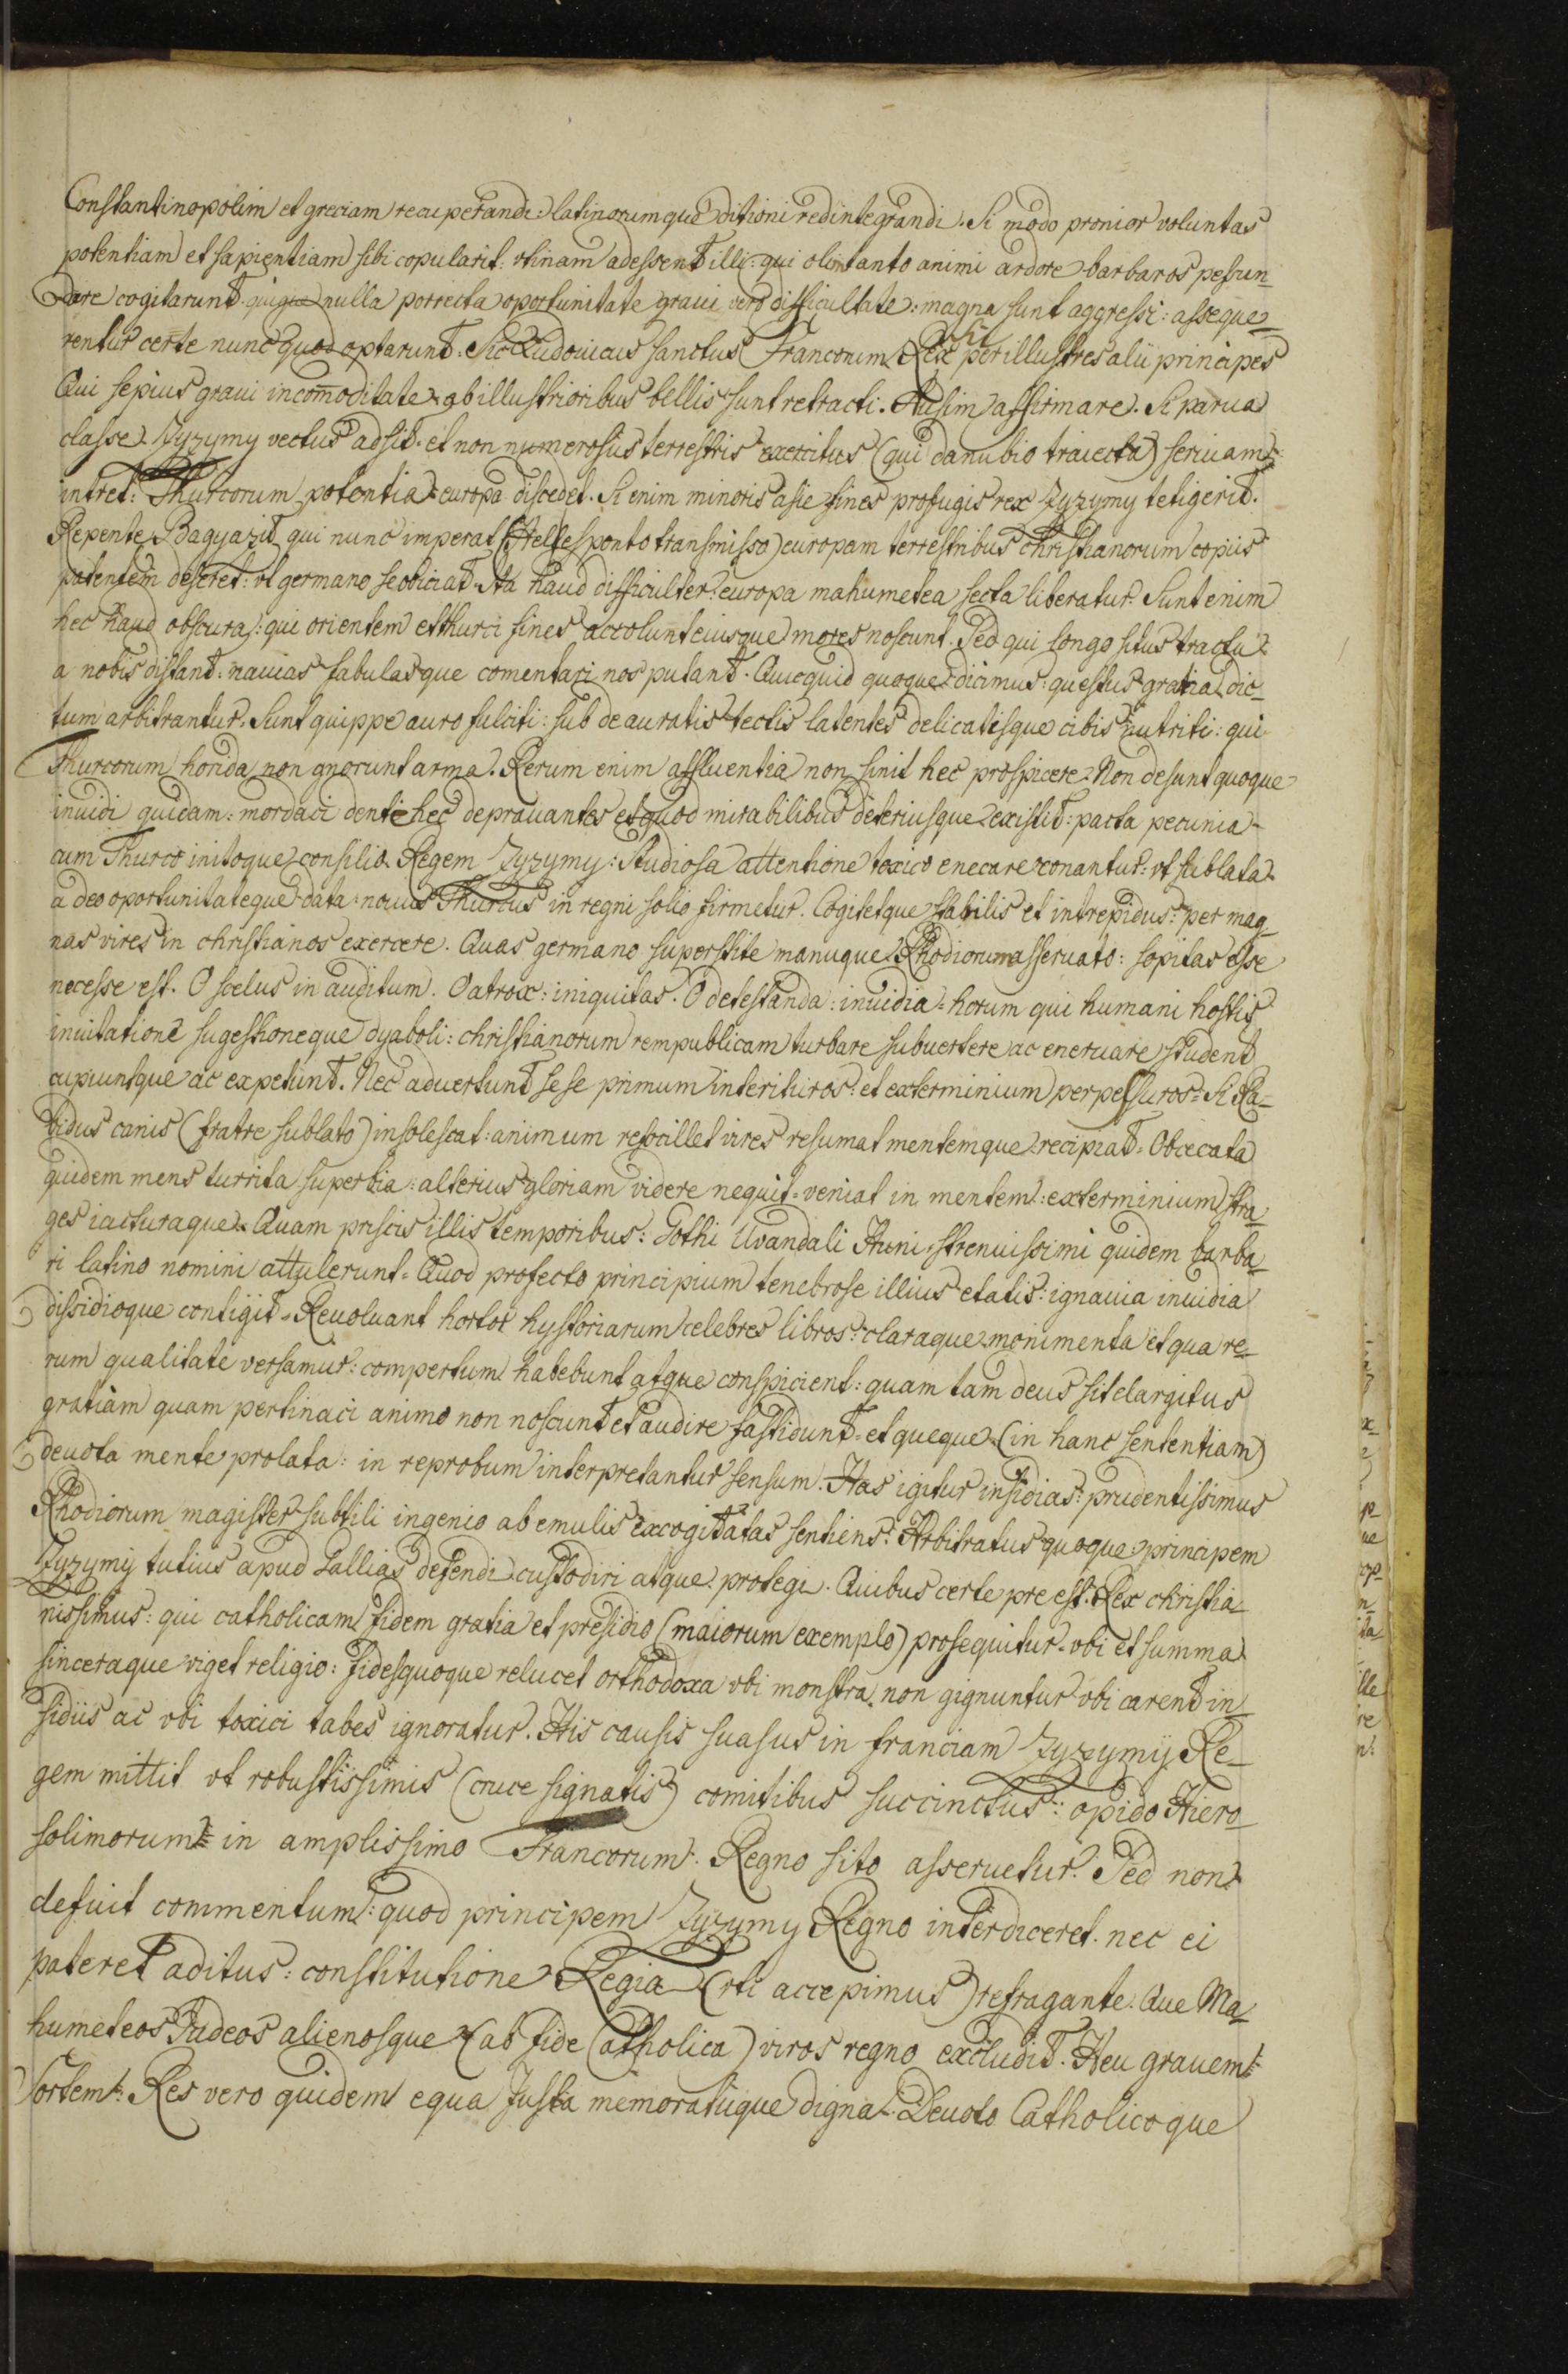 Constantinopolim et greciam recuperandi: latinorumque ditioni redintegrandi. Si modo pronior voluntas
potentiam et sapientiam sibi copularit: vtinam adessent illi: qui olim tanto animi ardore barbaros pessun-
dare cogitarunt. quique nulla porrecta oportunitate graui vero difficultate: magna sunt aggressi: asseque-
rentur certe nunc quod optarunt. Sic Ludouicus sanctus Francorum Rex sit perillustres alii principes
Qui sepius graui incommoditate ab illustrioribus bellis sunt retracti. Ausim affirmare. Si parua
classe Zyzymy vectus adsit. et non numerosus terrestris exercitus (qui danubio traiecta) seruiam
intret: Thurcorum potentia europa discedet. Si enim minoris asie fines profugis rex Zyzymy tetigerit.
Repente Bagyazit qui nunc imperat (Hellesponto transmisso) europam terrestribus christianorum copiis
patentem deseret: vt germano se obiciat. Ita haud difficulter europa mahumetea secta liberatur. Sunt enim
hec haud obscura: qui orientem et thurci fines accolunt eiusque mores noscunt. Sed qui longo situs tractu
a nobis distant: nauias fabulasque comentari nos putant. Quicquid quoque dicimus: questus gratia dic-
tum arbitrantur. Sunt quippe auro fulciti: sub deauratis tectis latentes delicatisque cibis nutriti: qui
Thurcorum horida non gnorunt arma. Rerum enim affluentia non sinit hec prospicere. Non desunt quoque
inuidi quidam: mordaci dente hec deprauantes et quod mirabilibus deteriusque existit: pacta pecunia
cum Thurco initoque consilio Regem Zyzymy: Studiosa attentione toxico enecare conantur: vt sublata
a deo oportunitateque data nouus Thurcus in regni solio firmetur. Cogitetque stabilis et intrepidus: per mag-
nas vires in christianos exercere. Quas germano superstite manuque Rhodiorum asseruato: sopitas esse
necesse est. O scelus in auditum. O atrox: iniquitas. O detestanda: inuidia: horum qui humani hostis
inuitatione sugestioneque dyaboli: christianorum rempublicam turbare subuertere ac eneruare student
cupiuntque ac expetunt. Nec aduertunt sese primum interituros: et exterminium perpessuros: Si Ra-
bidus canis (fratre sublato) insolescat: animum refocillet vires resumat mentemque recipiat. Obcecata
quidem mens turrita superbia: alterius gloriam videre nequit. veniat in mentem: exterminium stra-
ges iacturaque. Quam priscis illis temporibus: Gothi Uvandali Huni strenuissimi quidem barba-
ri latino nomini attulerunt. Quod profecto principium tenebrose illius etatis: ignauia inuidia
dissidioque contigit. Reuoluant hortor hystoriarum celebres libros: claraque monimenta et qua re-
rum qualitate versamur: compertum habebunt atque conspicient: quam tam deus sit elargitus
gratiam quam pertinaci animo non noscunt et audire fastidunt. et queque (in hanc sententiam)
deuota mente prolata: in reprobum interpretantur sensum. Has igitur insidias: prudentissimus
Rhodiorum magister subtili ingenio ab emulis excogitatas sentiens: Arbitratus quoque principem
Zyzymy tutius apud Gallias defendi custodiri atque protegi. Quibus certe pre est. Rex christia-
nissimus: qui catholicam fidem gratia et presidio (maiorum exemplo) prosequitur. vbi et summa
sinceraque viget religio: fidesquoque relucet orthodoxa vbi monstra non gignuntur vbi carent in-
sidiis ac vbi toxici tabes ignoratur. His causis suasus in franciam Zyzymy Re-
gem mittit vt robustissimis (cruce signatis) comitibus succinctus: opido Hiero-
solimorum in amplissimo Francorum Regno sito asseruetur. Sed non
defuit commentum: quod principem Zyzymy Regno interdiceret. nec ei
pateret aditus: constitutione Regia (vti accepimus) refragante. Que Ma-
humeteos Judeos alienosque (ab fide Catholica) viros regno excludit. Heu grauem
sortem. Res vero quidem equa Justa memoratuque digna. Deuoto Catholicoque